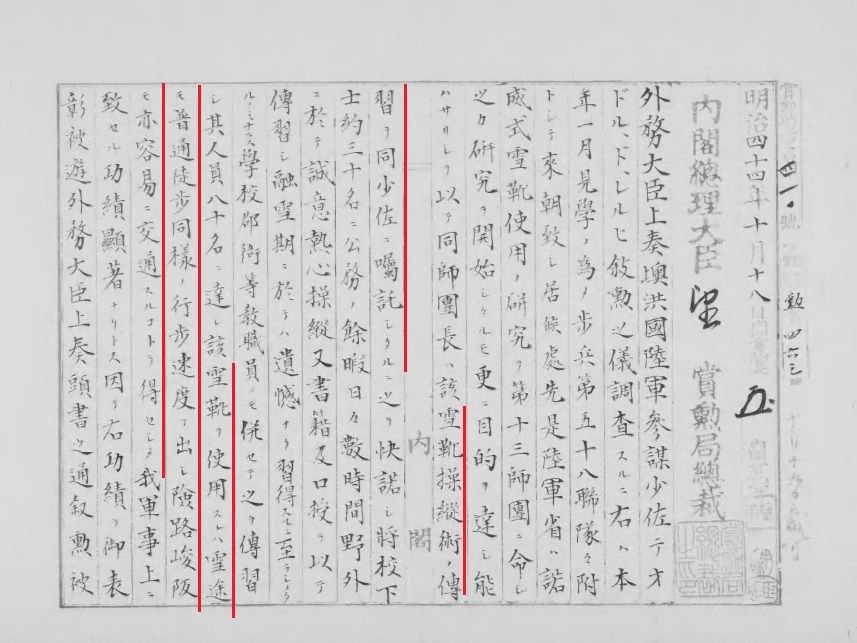 明治四十四年十月十八日
勲 四六三
内閣總理大臣
賞勲局總裁
外務大臣上奏墺洪國陸軍參謀少佐テオ
ドル、ド、レルヒ敍勲之儀調査スルニ右ハ本
年一月見學ノ為メ歩兵第五十八聯隊々附
トシテ來朝致シ居候處先是陸軍省ハ諾
威式雪靴使用ノ研究ヲ第十三師團ニ命シ
之カ研究ヲ開始シタルモ更ニ目的ヲ達シ能
ハサリシヲ以テ同師團長ハ該雪靴操縦術ノ傳
習ヲ同少佐ニ囑託シタルニ之ヲ快諾シ將校下
士約三十名ニ公務ノ餘暇日々數時間野外
ニ於テ誠意熱心操縦又書籍及口授ヲ以テ
傳習シ融雪期ニ於テハ遺憾ナク習得スルニ至ラシメ
學校郡衙等教職員ニモ併セテ之ヲ傳習
シ其人員八十名ニ達シ該雪靴ヲ使用スレハ雪途
モ普通徒歩同様ノ行歩速度ヲ出シ險路峻阪
モ亦容易ニ交通スルコトヲ得セシメ我軍事上ニ
致セル功績顯著ナリトス因テ右功績ヲ御表
彰被遊外務大臣上奏頭書之通敍勲被
内閣